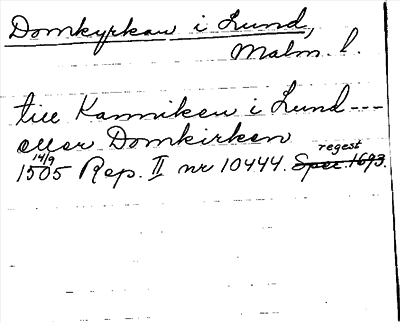 Domkyrkan i Lund,
Malm. l.
till Kanniken i Lund ---
eller Domkirken
14/9 regest
1505 Rep. II nr 10444. Spec. 1693.